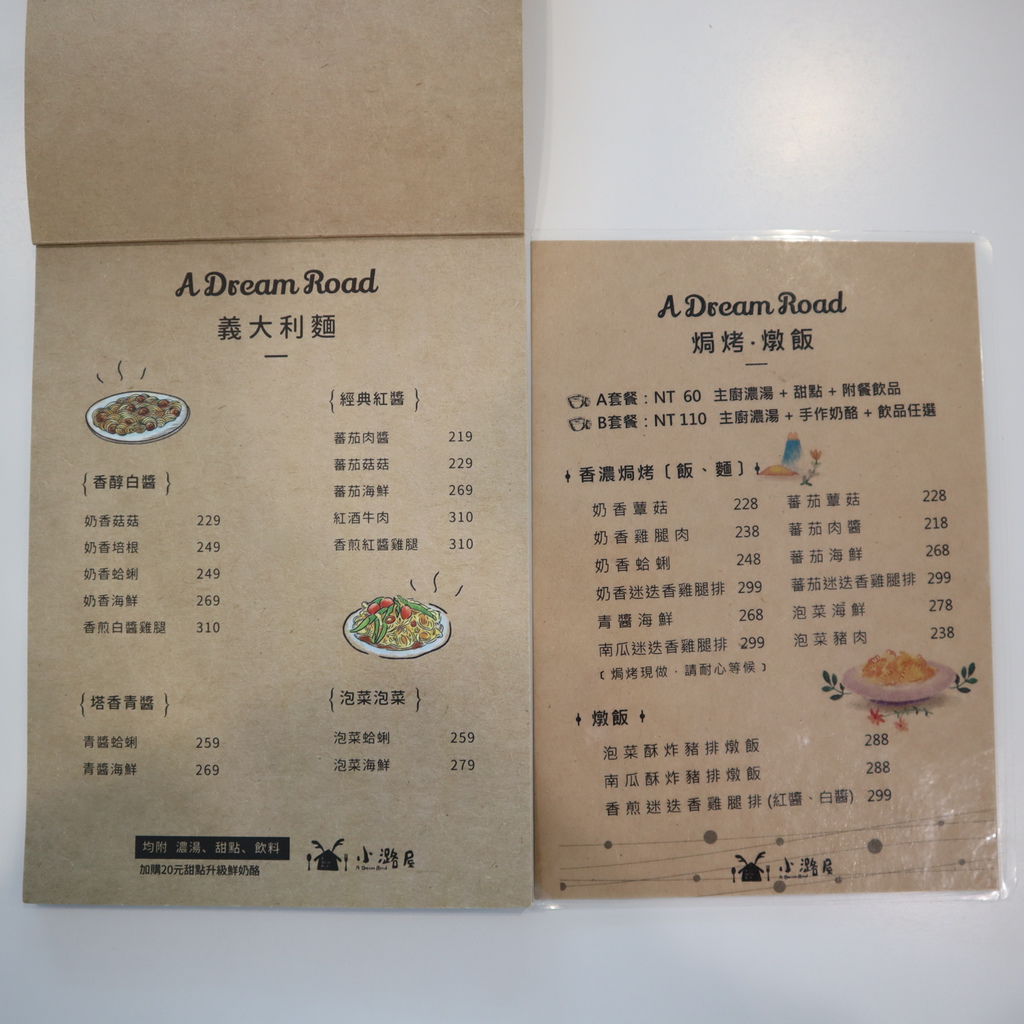 A Dream Road
義大利麵
{香醇白醬}
奶香菇菇 229
奶香培根 249
奶香蛤蜊 249
奶香海鮮 269
香煎白醬雞腿 310
{經典紅醬}
蕃茄肉醬 219
蕃茄菇菇 229
蕃茄海鮮 269
紅酒牛肉 310
香煎紅醬雞腿 310
{塔香青醬}
青醬蛤蜊 259
青醬海鮮 269
{泡菜泡菜}
泡菜蛤蜊 259
泡菜海鮮 279
均附 濃湯、甜點、飲料
加購20元甜點升級鮮奶酪
小潞屋
A Dream Road
焗烤·燉飯
A套餐：NT 60 主廚濃湯 + 甜點 + 附餐飲品
B套餐：NT 110 主廚濃湯 + 手作奶酪 + 飲品任選
香濃焗烤〔飯、麵〕
奶香蕈菇 228
奶香雞腿肉 238
奶香蛤蜊 248
奶香迷迭香雞腿排 299
青醬海鮮 268
南瓜迷迭香雞腿排 299
〔焗烤現做．請耐心等候〕
蕃茄蕈菇 228
蕃茄肉醬 218
蕃茄海鮮 268
蕃茄迷迭香雞腿排 299
泡菜海鮮 278
泡菜豬肉 238
燉飯
泡菜酥炸豬排燉飯 288
南瓜酥炸豬排燉飯 288
香煎迷迭香雞腿排(紅醬、白醬) 299
小潞屋